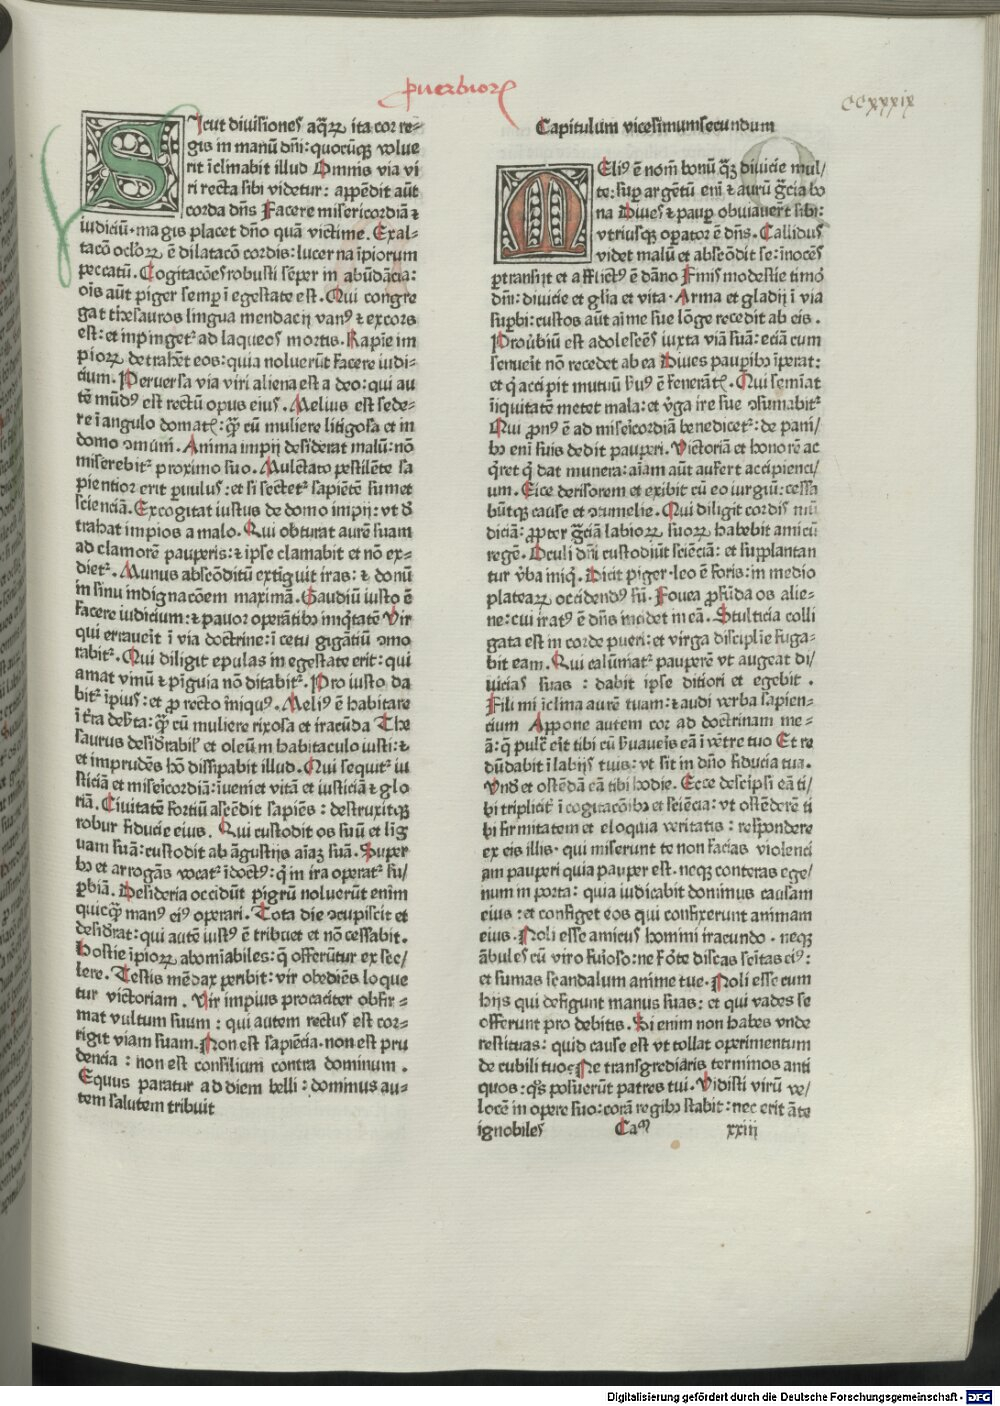 ꝑuerbiorꝝ
CCxxxix
SIcut diuisiones aq̄ꝝ ita cor re-
gis in manū dn̄i: quocūqꝫ volue
rit īclinabit illud Omnis via vi
ri recta sibi videtur: appēdit aūt
corda dn̄s Facere misericordiā ⁊
iudiciū·magis placet dn̄o quā victime. Exal-
tacō ocl'oꝝ ē dilatacō cordis: lucerna īpiorum
peccatū. Cogitacōes robusti sēper in abūdācia:
oīs aūt piger semꝑ ī egestate est. Qui congre
gat thesauros lingua mendacij vanꝰ ⁊ excors
est: et inpingetᷣ ad laqueos mortis. Rapie im
pioꝝ detrahēt eos: quia noluerūt facere iudi-
cium. Peruersa via viri aliena est a deo: qui au
tē mūdꝰ est rectū opus eius. Melius est sede-
re ī angulo domatꝭ: q̄ꝫ cū muliere litigosa et in
domo ꝯmuni. Anima impij desiderat malū: nō
miserebitᷣ proximo suo. Mulctato pestilēte sa
pientior erit ꝑuulus: et si sectetᷣ sapiētē sumet
scienciā. Excogitat iustus de domo impij: vt ď
trahat impios a malo. Qui obturat aurē suam
ad clamorē pauperis: ⁊ ipse clamabit et nō ex-
dietᷣ. Munus abscōditū extīguit iras: ⁊ donū
in sinu indignacōem maximā. Gaudiū iusto ē
facere iudicium: ⁊ pauor operātibꝫ iniq̇tatē Vir
qui erraueīt ī via doctrine: ī cetu gigātiū ꝯmo
rabitᷣ. Qui diligit epulas in egestate erit: qui
amat vinū ⁊ pīguia nō ditabitᷣ. Pro iusto da
bitᷣ īpius: et ꝓ recto īniquꝰ. Meliꝰ ē habitare
ī t̄ra deb̄ta: q̄ꝫ cū muliere rixosa et iracūda The
saurus desid̓rabilꝭ et oleū in habitaculo iusti: ⁊
et imprudēs hō dissipabit illud. Qui sequitᷣ iu
sticiā et misēicordiā: īueniet vitā et iusticiā ⁊ glo
riā. Ciuitatē fortiū ascēdit sapiēs: destruxitqꝫ
robur fiducie eius. Qui custodit os suū et līg
uam suā: custodit ab āgustijs aīaꝫ suā. Super
bꝰ et arrogās vocatᷣ īdoctꝰ: q̄ in ira operatᷣ su/
ꝑbiā. Desideria occidūt pigrū noluerūt enim
quicq̄ꝫ manꝰ eiꝰ operari. Tota die ꝯcupiscit et
desid̓rat: qui autē iustꝰ ē tribuet et nō cessabit.
Hostie īpioꝝ abomīabiles: q̄ offerūtur ex sce/
lere. Testis mēdax peribit: vir obediēs loque
tur victoriam. Vir impius procaciter obfir=
mat vultum suum: qui autem rectus est cor-
rigit viam suam. Non est sapiēcia·non est pru
dencia: non est consilium contra dominum.
Equus paratur ad diem belli: dominus au-
tem salutem tribuit
Capitulum vicesimumsecundum
MEliꝰ ē nom̄ bonū q̄ꝫ diuicie mul/
te: suꝑ argētū eni ⁊ aurū g̓cia bo
na Diues ⁊ pauꝑ obuiauerūt sibi:
vtriusqꝫ oꝑator ē dn̄s. Callidus
videt malū et abscōdit se: inocēs
ꝑtransijt et afflictꝰ ē dāno Finis modestie timoꝛ
dn̄i: diuicie et gl̄ia et vita·Arma et gladij ī via
suꝑbi: custos aūt aīme sue lōge recedit ab eis.
Prou̓biū est adolescēs iuxta viā suā: eciā cum
senuerit nō recedet ab ea Diues pauꝑibꝫ īꝑat:
et q̇ accipit mutuū ẜuꝰ ē fenerātꝭ. Qui semīat
īiquitatē metet mala: et v̓ga ire sue ꝯsumabitᷣ
Qui ꝓnꝰ ē ad misēicordiā benedicetᷣ: de pani/
bꝫ enī suis dedit pauperi. Victoriā et honorē ac
q̇ret q̇ dat munera: aīam aūt aufert accipienci/
um. Eice derisorem et exibit cū eo iurgiū: cessa
būtqꝫ cause et ꝯtumelie. Qui diligit cordis mū
diciā: ꝓpter g̓ciā labioꝝ suoꝝ habebit amicū
regē. Oculi dn̄i custodiūt sciēciā: et supplantan
tur v̓ba iniq̇. Dicit piger·leo ē foris: in medio
plateaꝝ occidendꝰ sū. Fouea ꝓfūda os alie-
ne: cui iratꝰ ē dn̄s īcidet in eā. Stulticia colli
gata est in corde pueri: et virga disciplīe fuga-
bit eam. Qui calūniatᷣ pauperē vt augeat di/
uicias suas : dabit ipse ditiori et egebit .
Fili mi īclina aurē tuam: ⁊ audi verba sapien-
cium Appone autem cor ad doctrinam me-
ā: q̄ pulcra erit tibi cū ẜuaueīs eā ī vētre tuo Et re
dūdabit ī labijs tuis: vt sit in dn̄o fiducia tua.
Vnď et ostēdā eā tibi hodie. Ecce descipsi eā ti/
bi tripliciť ī cogitacōibꝫ et sciēcia: vt ostēderē ti
bi firmitatem et eloquia veritatis: respondere
ex eis illis· qui miserunt te non facias violenci
am pauperi quia pauper est. neqꝫ conteras ege/
num in porta: quia iudicabit dominus causam
eius: et configet eos qui confixerunt animam
eius. Noli esse amicus homini iracundo·neqꝫ
ābules cū viro fu̓ioso: ne fōte discas seītas eiꝰ:
et sumas scandalum anime tue. Noli esse cum
hijs qui defigunt manus suas: et qui vades se
offerunt pro debitis. Si enim non habes vnde
restituas: quid cause est vt tollat operimentum
de cubili tuo Ne transgrediaris terminos anti
quos: q̄s posuerūt patres tui. Vidisti virū ve/
locē in opere suo: corā regibꝫ stabit: nec erit āte
ignobiles Caᵐ xxiij
Digitalisierung gefördert durch die Deutsche Forschungsgemeinschaft - DFG